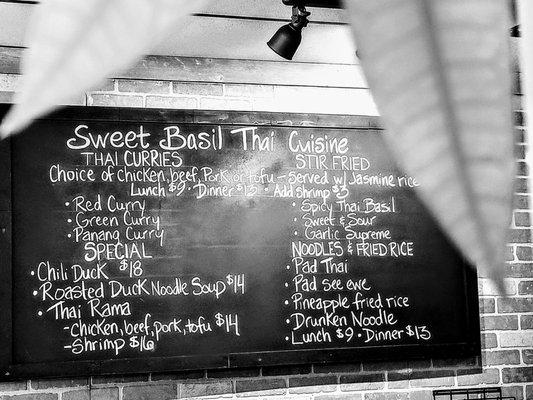 Sweet Basil Thai Cuisine
THAI CURRIES
STIR FRIED
Choice of chicken, beef, Pork or tofu - Served w/ Jasmine rice
Lunch $9 · Dinner $13 · Add Shrimp $3
• Red Curry
• Green Curry
• Panang Curry
• Spicy Thai Basil
• Sweet & Sour
• Garlic Supreme
SPECIAL
• Chili Duck $18
• Roasted Duck Noodle Soup $14
• Thai Rama
- Chicken, beef, pork, tofu $14
- Shrimp $16
NOODLES & FRIED RICE
• Pad Thai
• Pad see ewe
• Pineapple fried rice
• Drunken Noodle
• Lunch $9 • Dinner $13